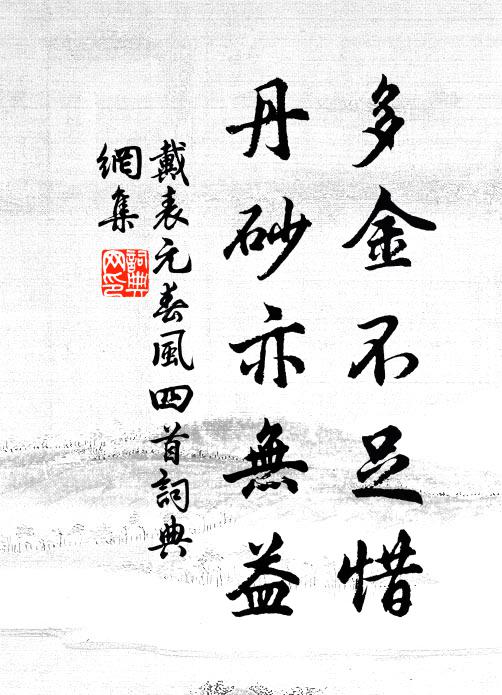 多金不足惜
丹砂亦無益
戴表元春風四首詞典
網集
詞典
网印